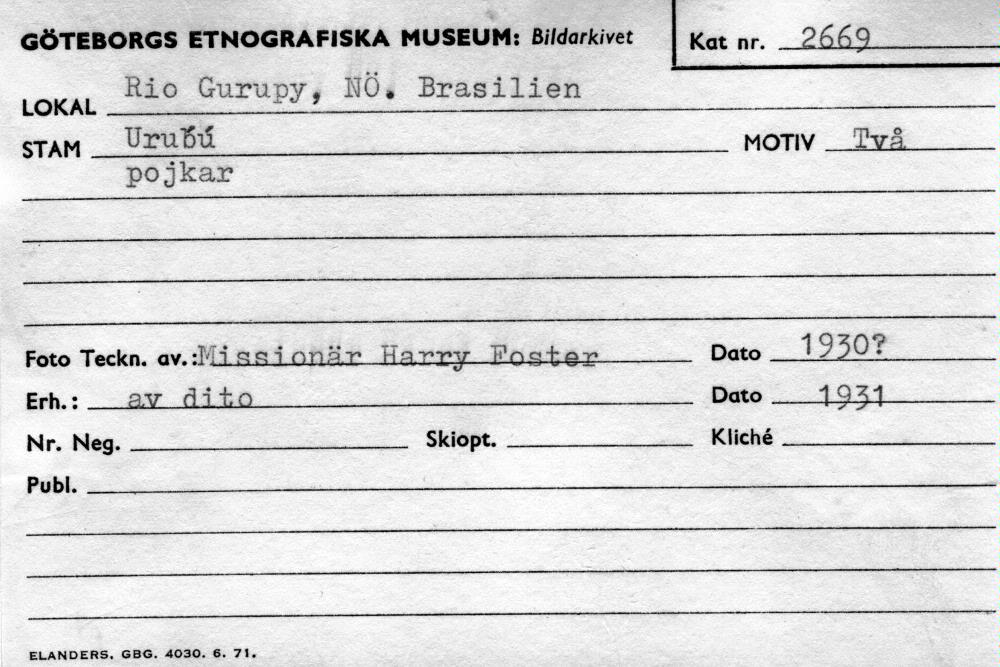 GÖTEBORGS ETNOGRAFISKA MUSEUM: Bildarkivet Kat nr. 2669
LOKAL Rio Gurupy, NÖ. Brasilien
STAM Urubú MOTIV Två
pojkar
Foto Teckn. av.: Missionär Harry Foster Dato 1930?
Erh.: av dito Dato 1931
Nr. Neg. Skiopt. Kliché
Publ.
ELANDERS. GBG. 4030. 6. 71.